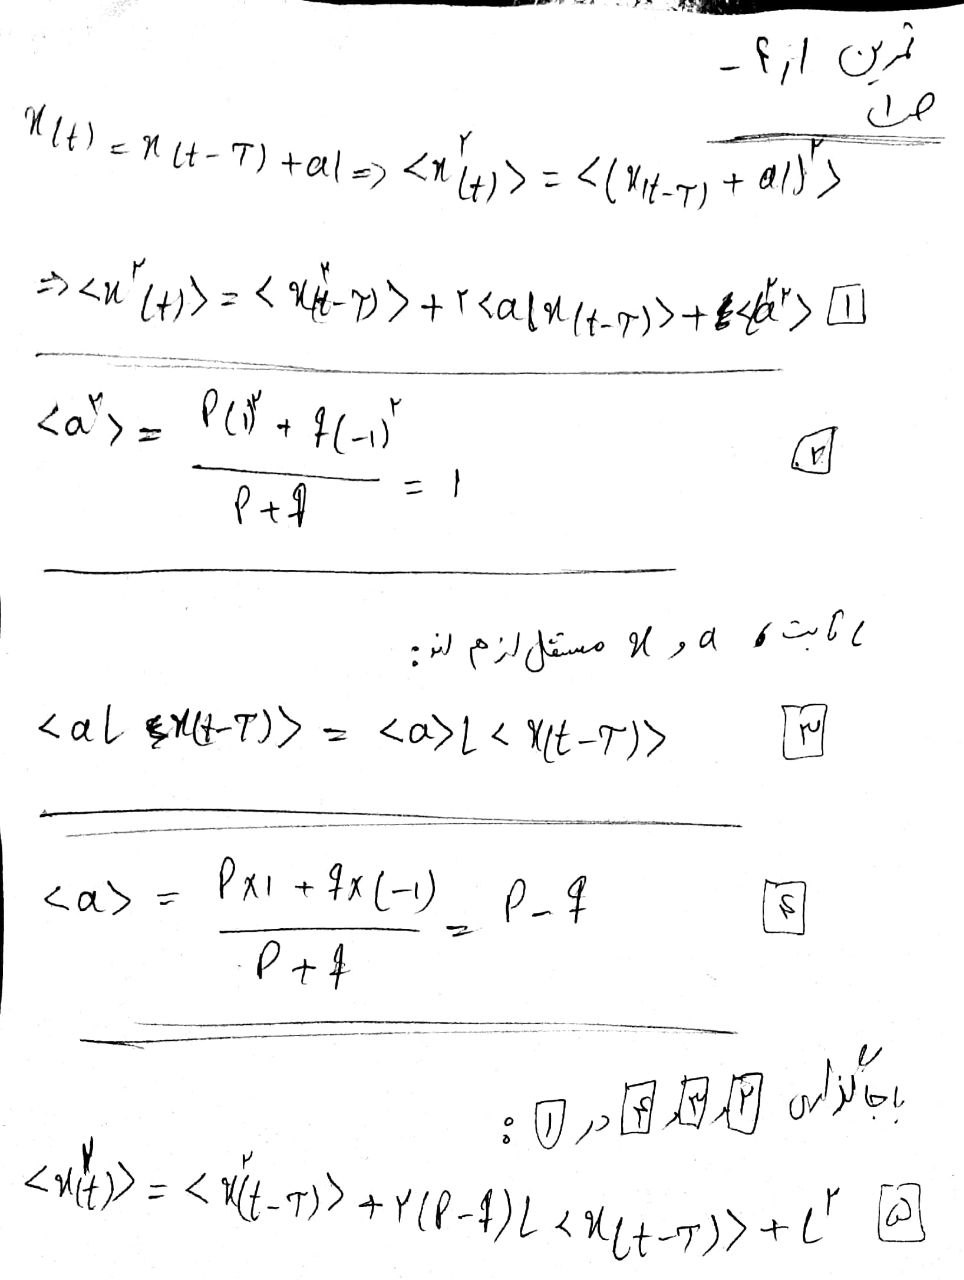 تمرین ۲ از ۴ -
x(t) = x(t-T) + al => <x²(t)> = <(x(t-T) + al)²>
=> <x²(t)> = <x²(t-T)> + ۲<al x(t-T)> + <l²a²> [۱]
<a²> = (P(1)² + q(-1)²) / (P+q) = 1 [۲]
l ثابت و a و x مستقل از هم اند:
<al x(t-T)> = <a>l<x(t-T)> [۳]
<a> = (P×1 + q×(-1)) / (P+q) = P-q [۴]
باجاگذاری [۲], [۳], [۴] در [۱]:
<x²(t)> = <x²(t-T)> + ۲(P-q)l<x(t-T)> + l² [۵]